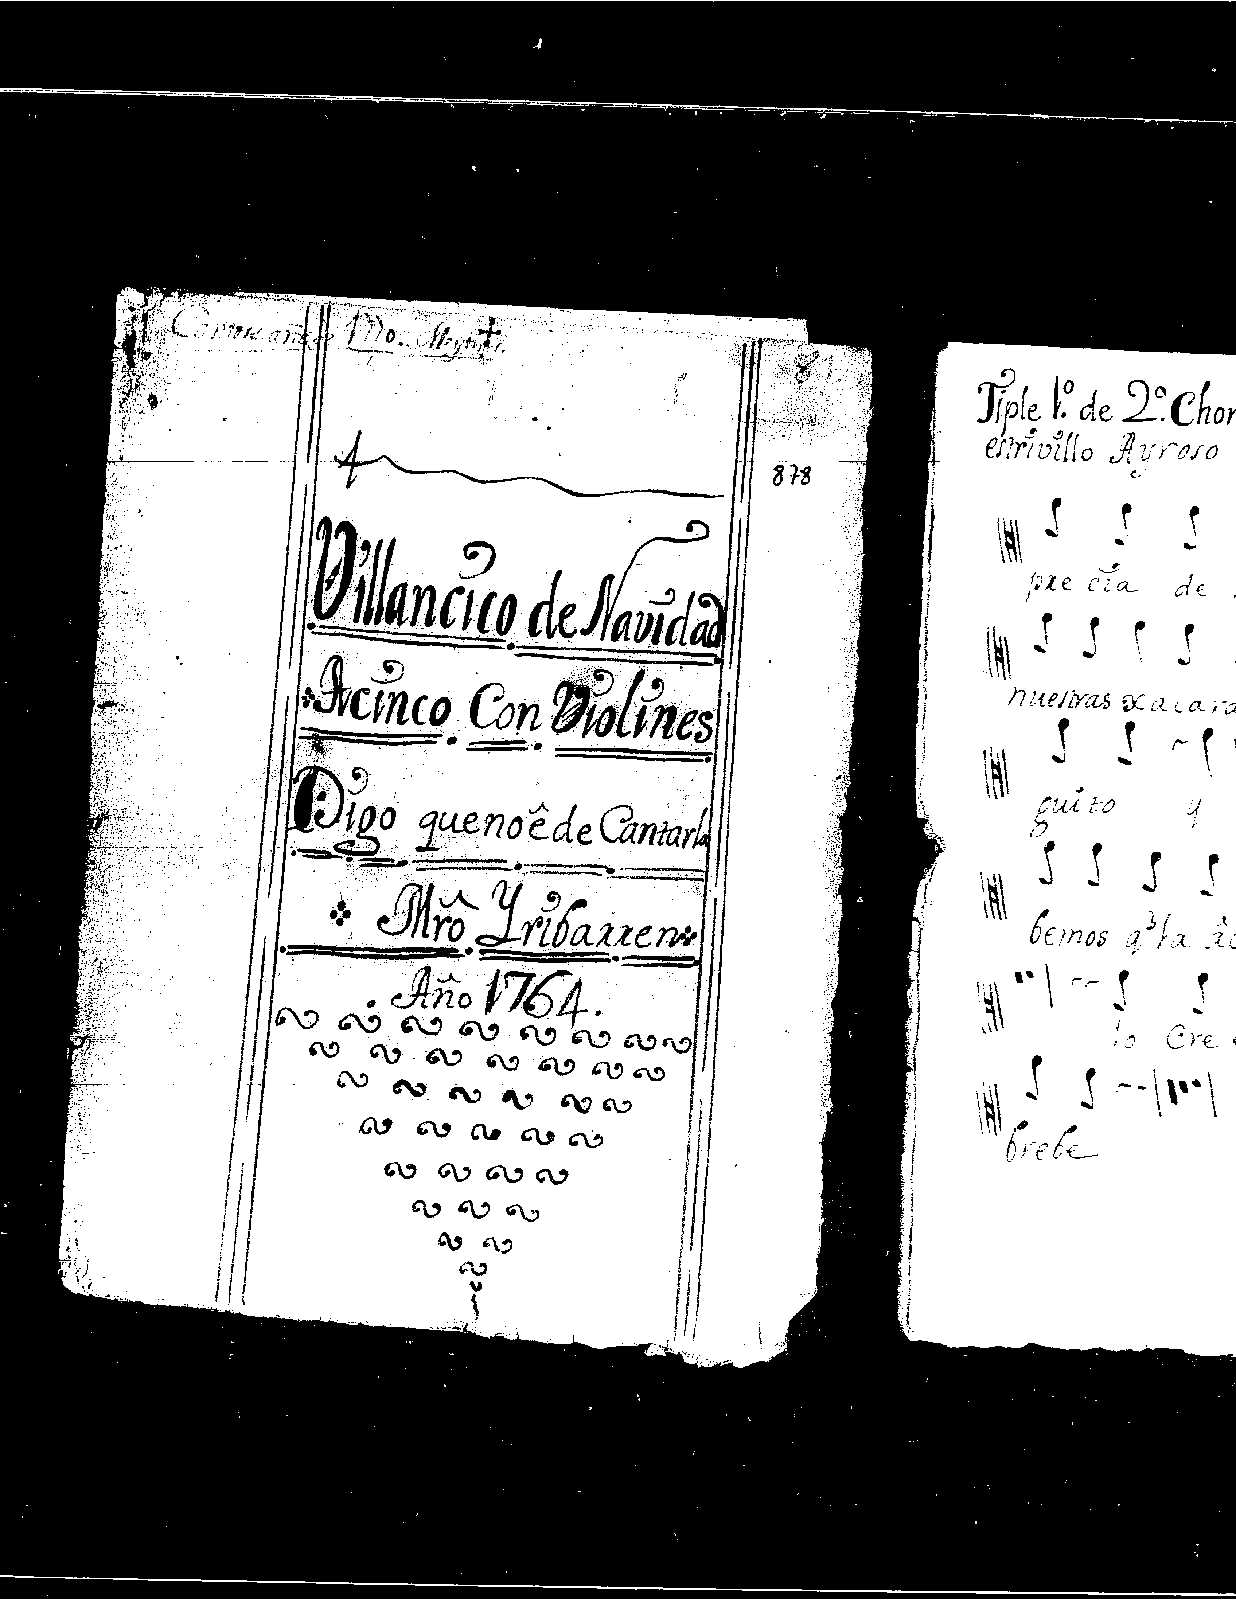 878
Villancico de Navidad
Acinco Con Violines
Digo que no ê de Cantarla
Mrô Yribarren
Año 1764.
Tiple 1º. de 2º. Chor
estrivillo Ayroso
pre cia de
nuestras xacara
guito y
bemos q̃ la
lo Cre
brebe